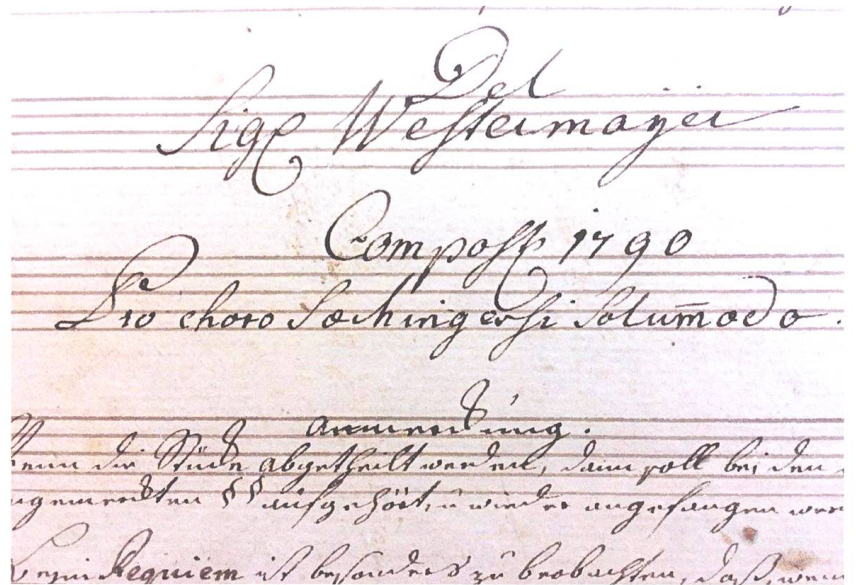 Del
Sigr Westermayer
Compost 1790
Pro choro Sæckingensi Solum̄odo.
Anmerckúng.
Wenn die Stücke abgetheilt werden, dann soll bei den
angemerckten §§ aufgehört, u wieder angefangen wer
Beym Requiem ist besonders zu beobachten, daß, wenn